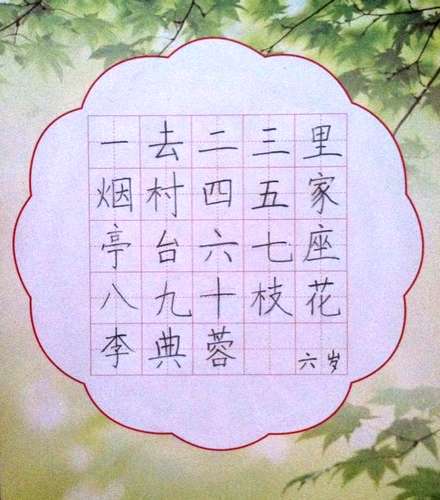 一去二三里
烟村四五家
亭台六七座
八九十枝花
李典蓉 六岁